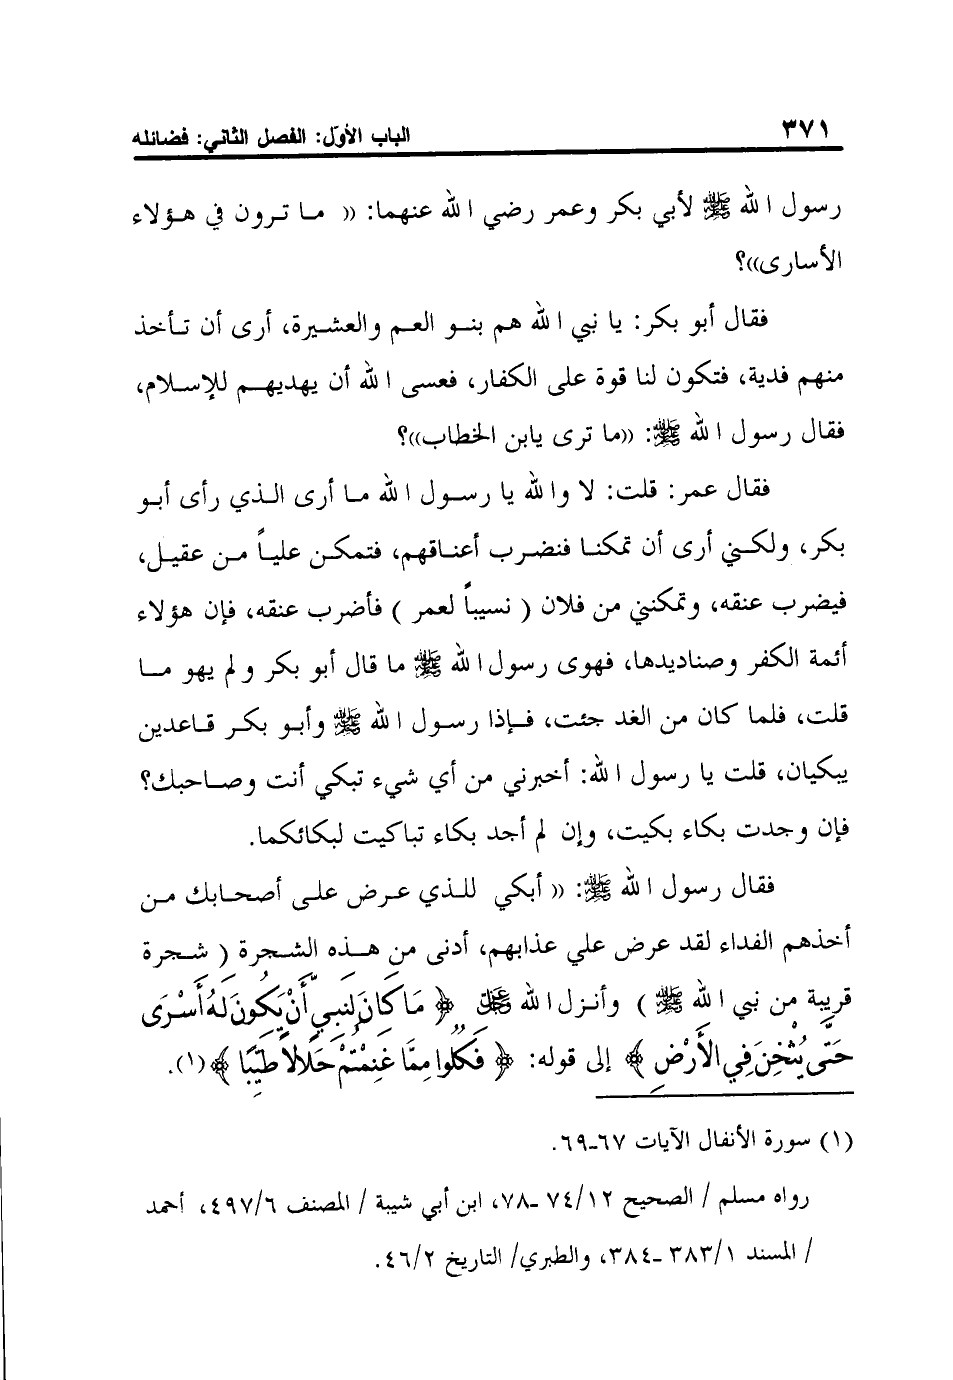 ٣٧١ الباب الأوّل: الفصل الثاني: فضائله
رسول الله ﷺ لأبي بكر وعمر رضي الله عنهما: (( ما ترون في هؤلاء
الأسارى))؟
فقال أبو بكر: يا نبي الله هم بنو العم والعشيرة، أرى أن تأخذ
منهم فدية، فتكون لنا قوة على الكفار، فعسى الله أن يهديهم للإسلام،
فقال رسول الله ﷺ: ((ما ترى يابن الخطاب))؟
فقال عمر: قلت: لا والله يا رسول الله ما أرى الذي رأى أبو
بكر، ولكني أرى أن تمكنا فنضرب أعناقهم، فتمكن علياً من عقيل،
فيضرب عنقه، وتمكنني من فلان ( نسيباً لعمر ) فأضرب عنقه، فإن هؤلاء
أئمة الكفر وصناديدها، فهوى رسول الله ﷺ ما قال أبو بكر ولم يهو ما
قلت، فلما كان من الغد جئت، فإذا رسول الله ﷺ وأبو بكر قاعدين
يبكيان، قلت يا رسول الله: أخبرني من أي شيء تبكي أنت وصاحبك؟
فإن وجدت بكاء بكيت، وإن لم أجد بكاء تباكيت لبكائكما.
فقال رسول الله ﷺ: (( أبكي للذي عرض على أصحابك من
أخذهم الفداء لقد عرض علي عذابهم، أدنى من هذه الشجرة ( شجرة
قريبة من نبي الله ﷺ ) وأنزل الله عز وجل ﴿ مَا كَانَ لِنَبِيٍّ أَنْ يَكُونَ لَهُ أَسْرَى
حَتَّى يُثْخِنَ فِي الأَرْضِ ﴾ إلى قوله: ﴿ فَكُلُوا مِمَّا غَنِمْتُمْ حَلالاً طَيِّبًا ﴾(١).
(١) سورة الأنفال الآيات ٦٧-٦٩.
رواه مسلم / الصحيح ١٢/ ٧٤ -٧٨، ابن أبي شيبة / المصنف ٤٩٧/٦، أحمد
/ المسند ١/ ٣٨٣ -٣٨٤، والطبري/ التاريخ ٤٦/٢.